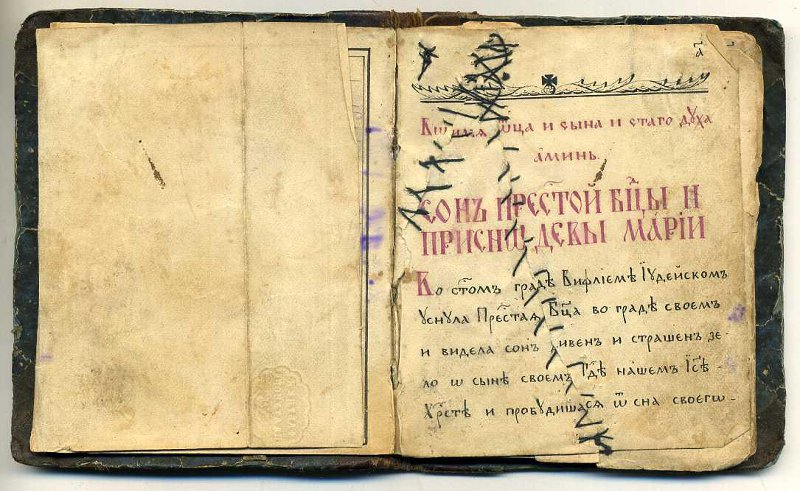 а҃
Во имя ѿца и сына и стаго духа
аминь.
СОНЪ ПРЕСТОЙ БЦЫ И
ПРИСНѠ ДЕВЫ МАРІИ
Во стомъ градѣ Вифлiемѣ Іудейскомъ
уснула Престая Бца во градѣ своемъ
и видела сонъ дивенъ и страшенъ зе-
ло ѡ сынѣ своемъ Гдѣ нашемъ Ісѣ -
Хрстѣ и пробудишася ѿ сна своегѡ -